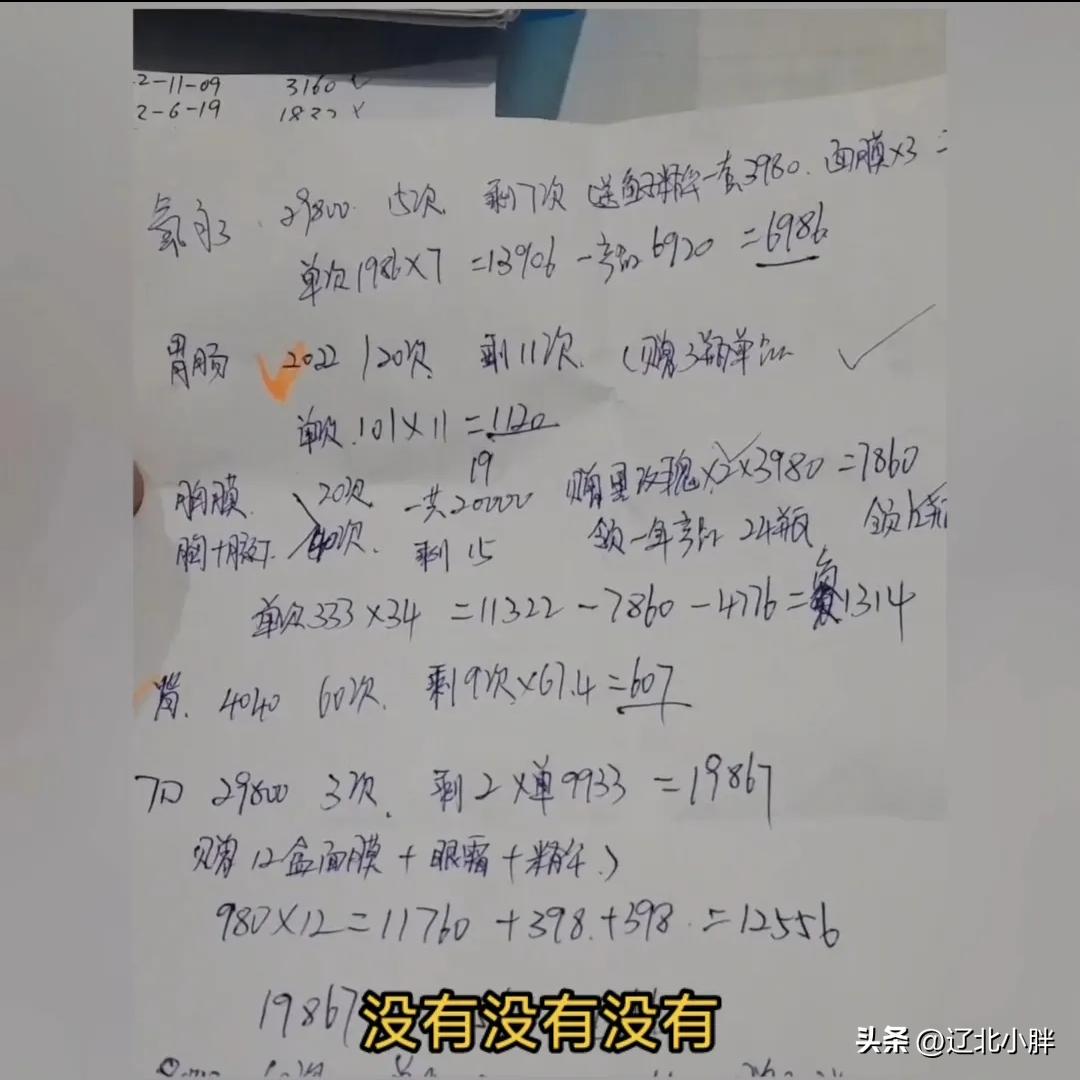 2-11-09 3160
2-6-19 18
29800 15次 剩7次 (送 一套3980. 面膜×3 =
单次1986×7 =13906 - 产品 6920 =6986
胃肠 2022 120次 剩11次. (赠3瓶单品
单次.101×11 =1120
19
胸膜 20次 一共20000 赠黑玫瑰×2×3980 =7860
胸+腋下 40次. 剩15 领一年产品 24瓶 领
单次333×34 =11322-7860-4776=负1314
肾. 4040 60次. 剩9次×67.4=607
29800 3次. 剩2×单9933 =19867
赠12盒面膜+眼霜+精华)
980×12=11760 +398.+398.=12556
19867
没有没有没有
头条 @辽北小胖